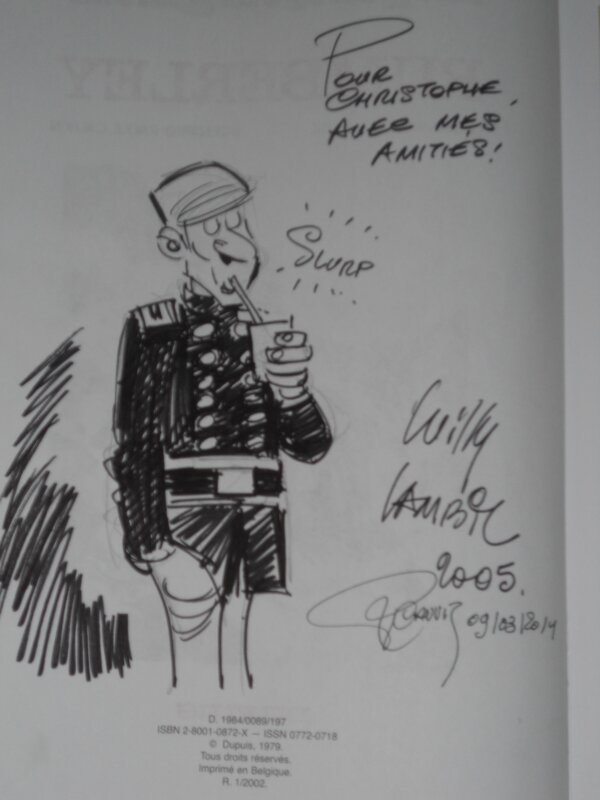 POUR
CHRISTOPHE,
AVEC MES
AMITIÉS!
SLURP
Willy
LAMBIL
2005.
CAUVIN 09/03/2014
D. 1984/0089/197
ISBN 2-8001-0872-X — ISSN 0772-0718
© Dupuis, 1979.
Tous droits réservés.
Imprimé en Belgique.
R. 1/2002.